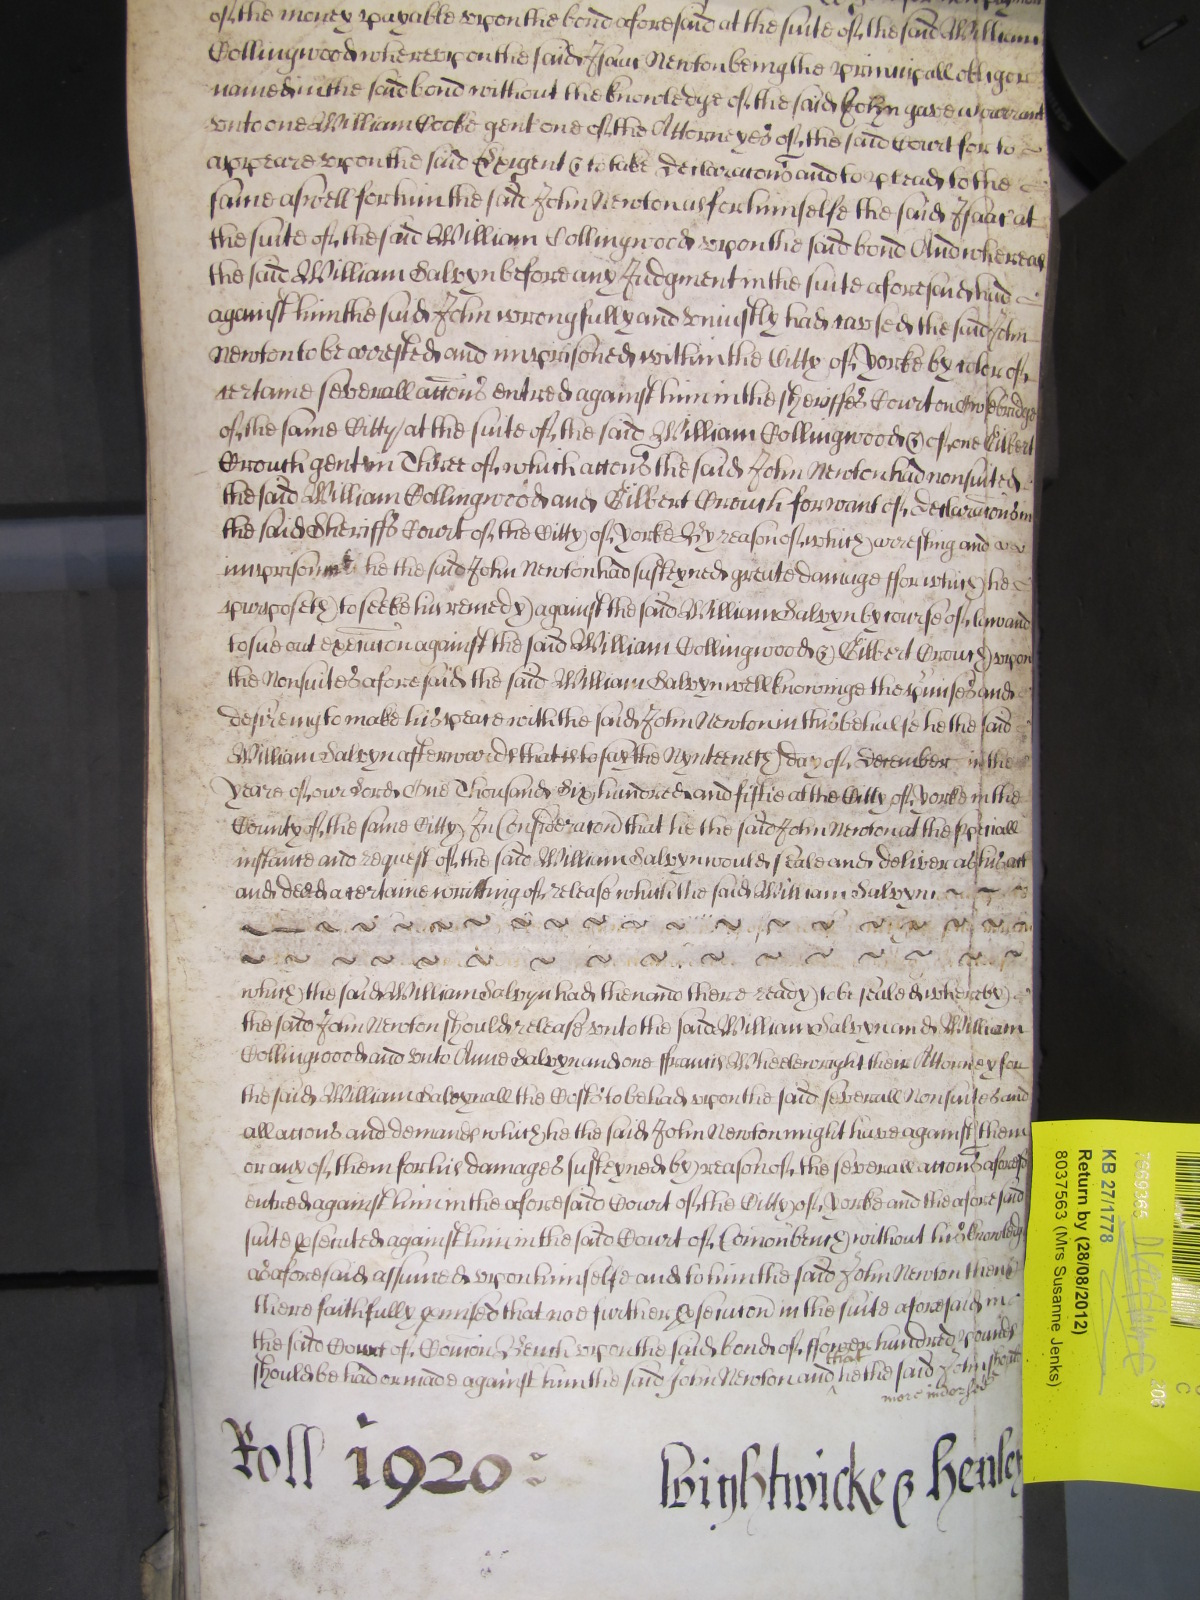 of the money payable upon the bond aforesaid at the suite of the said William
Collingwood whereupon the said Isaac Newton being the principall obligor
named in the said bond without the knowledge of the said John gave warrant
unto one William Cocke gent one of the Attorneyes of the said Court for to
appeare upon the said Exigent & to take declaracons and to plead to the
same aswell for him the said John Newton as for himselfe the said Isaac at
the suite of the said William Collingwood upon the said bond And whereas
the said William Salvyn before any Judgment in the suite aforesaid had
against him the said John wrongfully and uniustly had caused the said John
Newton to be arested and imprisoned within the Citty of Yorke by color of
certaine severall accons entred against him in the sheriffes Court on Owsebridge
of the same Citty at the suite of the said William Collingwood & of one Gilbert
Crouch gent in Three of which accons the said John Newton had nonsuited
the said William Collingwood and Gilbert Crouch for want of declaracons in
the said Sheriffs Court of the Citty of Yorke By reason of which arresting and
imprisonmt he the said John Newton had susteyned greate damage ffor which he
purposeth to seeke his remedy against the said William Salvyn by course of law and
to sue out execucon against the said William Collingwood & Gilbert Crouch upon
the Nonsuites aforesaid the said William Salvyn well knowinge the pmises and
desireing to make his peace with the said John Newton in this behalfe he the said
William Salvyn afterwards that is to say the Nynteenth day of December in the
yeare of our Lord One Thousand Six hundred and fiftie at the Citty of Yorke in the
County of the same Citty In consideracon that he the said John Newton at the speciall
instance and request of the said William Salvyn would seale and deliver as his act
and deed a certaine writting of release which the said William Salvyn
which the said William Salvyn had then and there ready to be sealed whereby
the said John Newton should release unto the said William Salvyn and William
Collingwood and unto Anne Salvyn and one ffrancis Wheelewright their Attorney for
the said William Salvyn all the Costs to be had upon the said severall Nonsuites and
all accons and demands which he the said John Newton might have against them
or any of them for his damages susteyned by reason of the severall accons aforesd
entred against him in the aforesaid Court of the Citty of Yorke and the aforesaid
suite psecuted against him in the said Court of Comon bench without his knowledge
as aforesaid assumed upon himselfe and to him the said John Newton then
there faithfully pmised that noe further psecucon in the suite aforesaid in
the said Court of Comon Bench upon the said bond of ffower hundred pounds
should be had or made against him the said John Newton and that he the said John should
more indorsed
Roll 1920
Wightwicke & Henley
KB 27/1778
Return by (28/08/2012)
8037563 (Mrs Susanne Jenks)